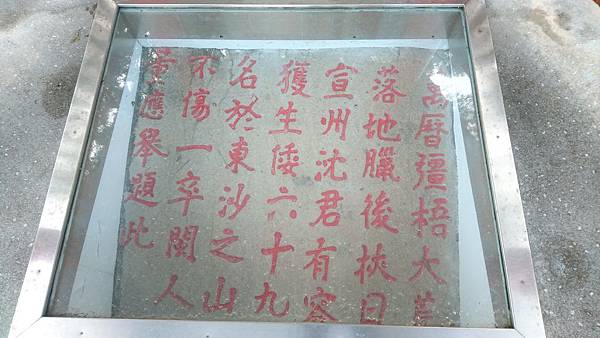 萬曆彊梧大荒
落地臘後挾日
宣州沈君有容
獲生倭六十九
名於東沙之山
不傷一卒閩人
黃應舉題此